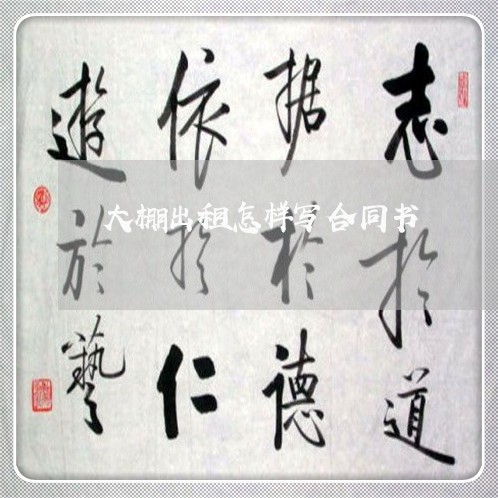 志於道
据於德
依於仁
遊於藝
大棚出租怎样写合同书